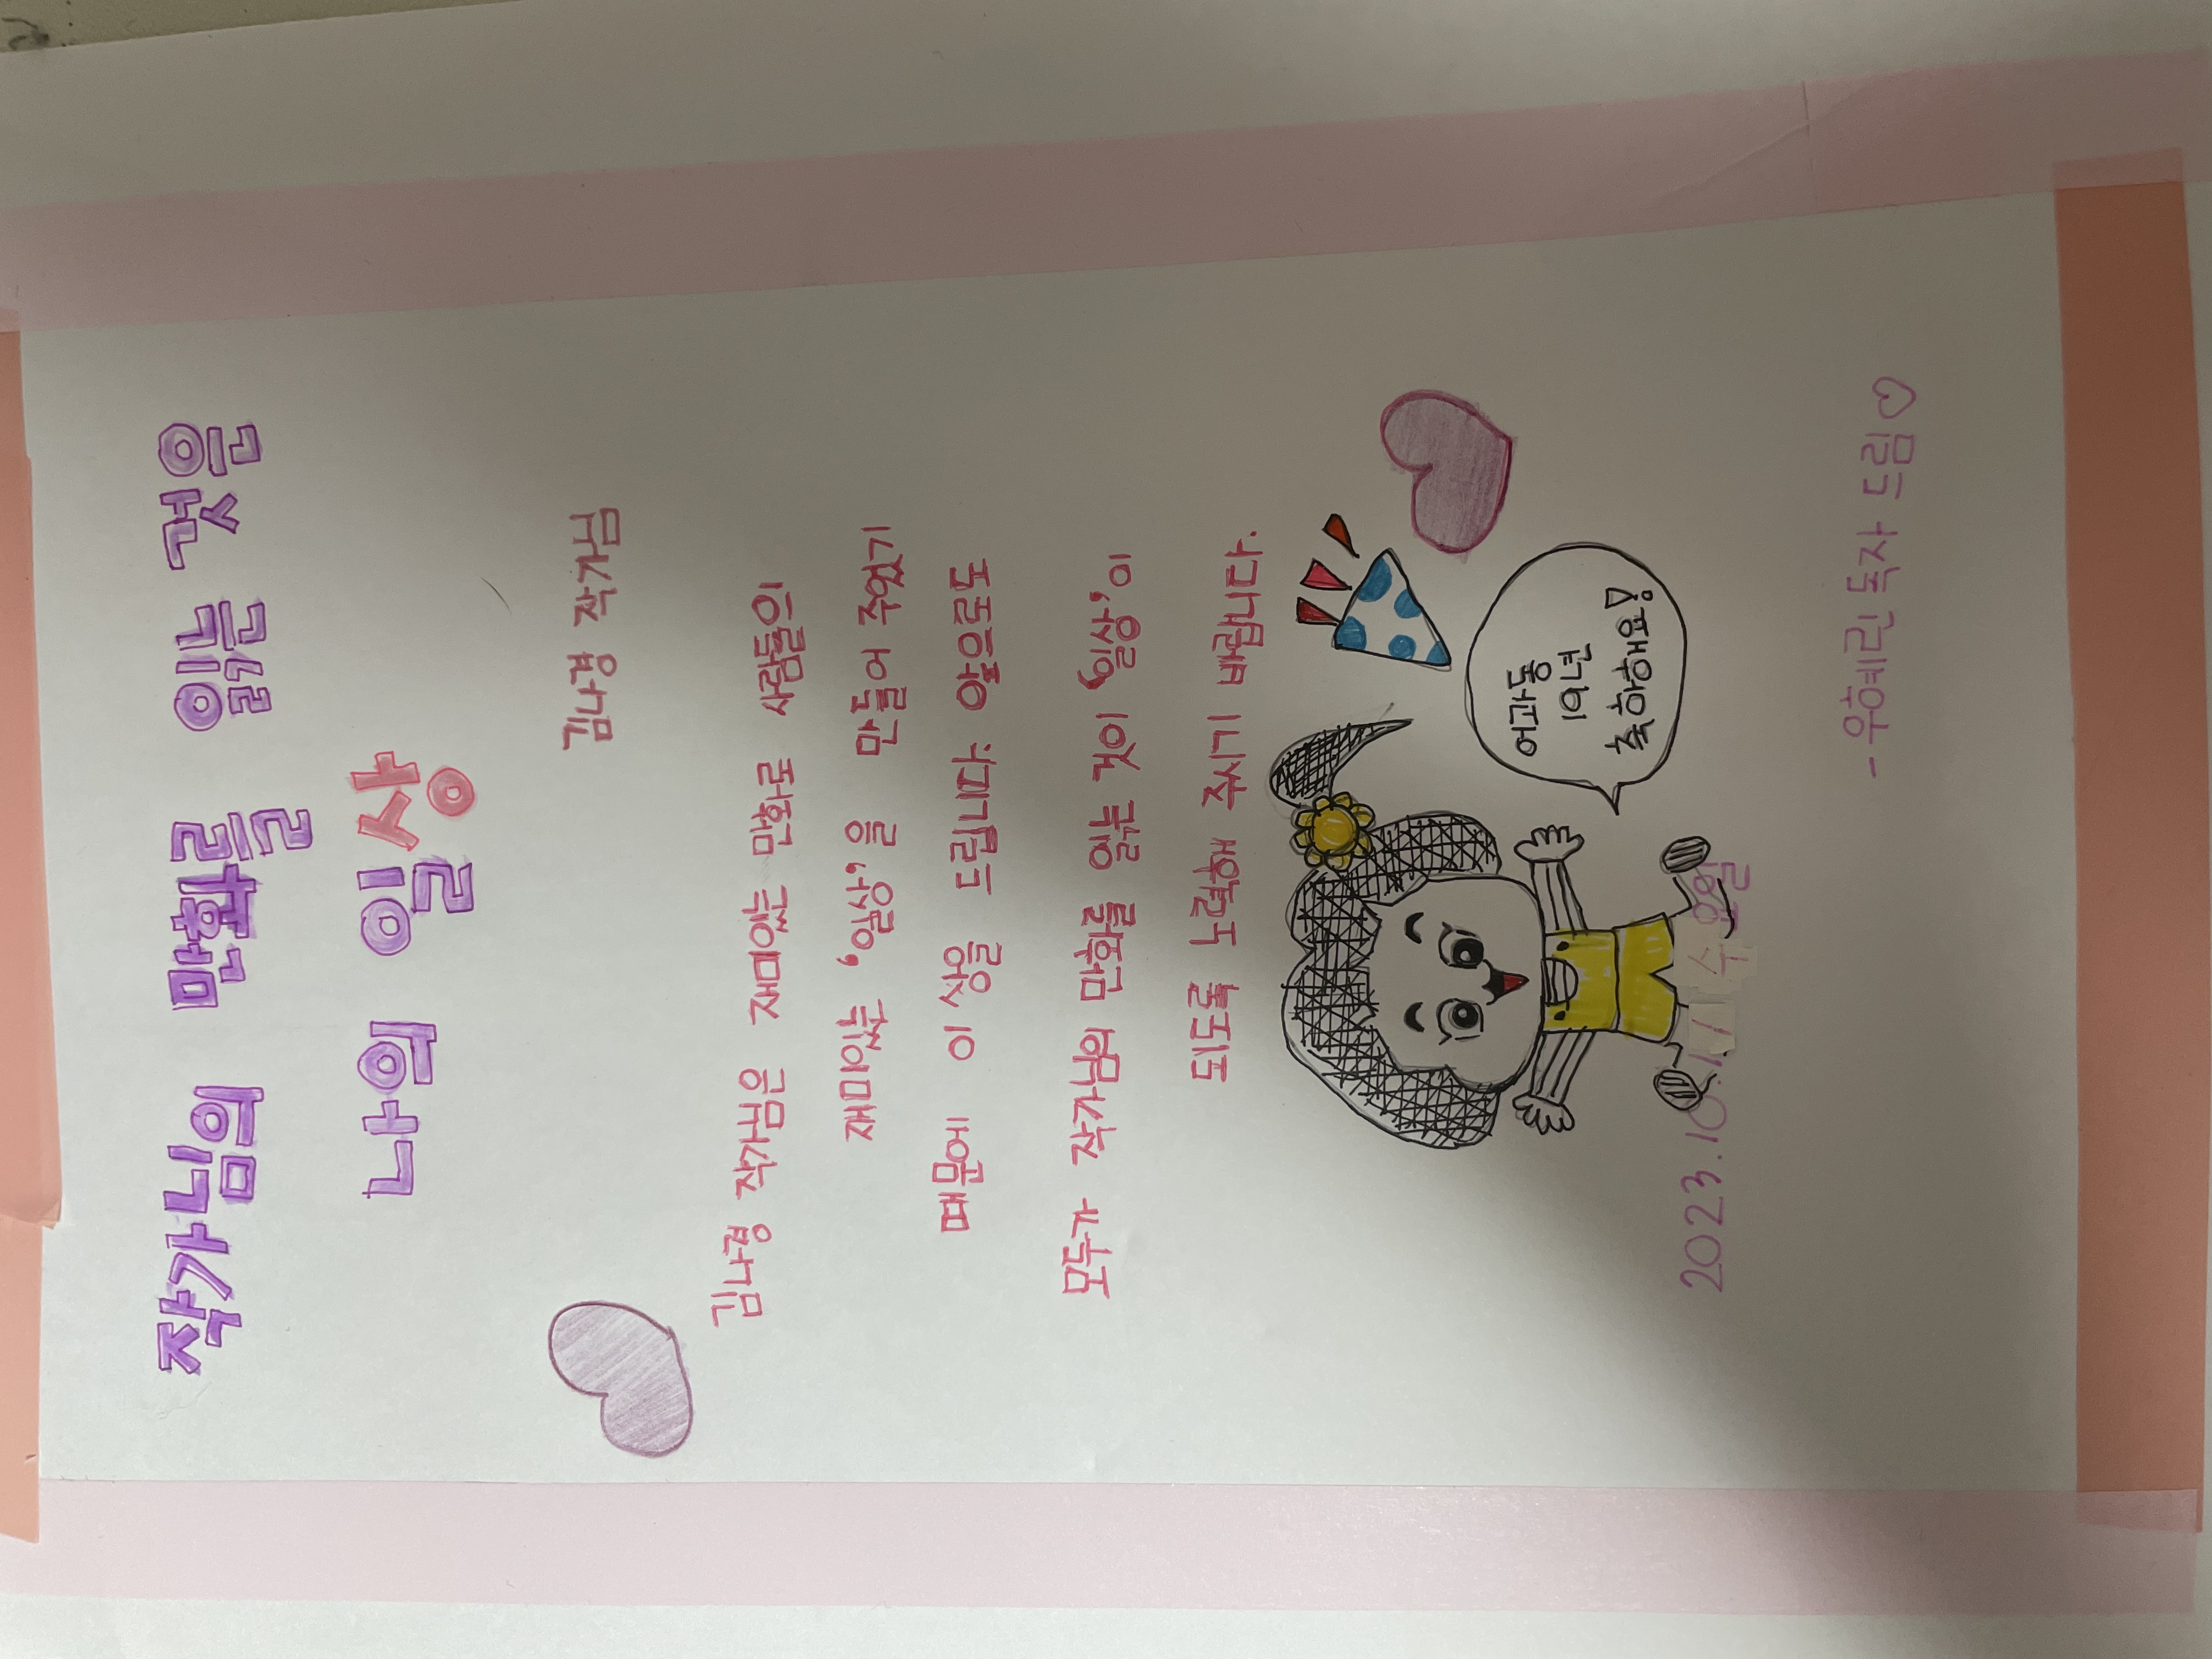 작가님의 만화를 읽는 것은
나의 일상
김나경 작가님
김나경 작가님은 재미있는 만화로 사람들의
재미있는 '일상'을 만들어 주었기
때문에 이 상을 드립니다. 앞으로도
모두가 작가님의 만화를 읽는 것이 '일상'이
되도록 노력해 주시기 바랍니다.
어과동
19년
축하해요!
2023.10.11 수요일
- 우혜린 독자 드림♡